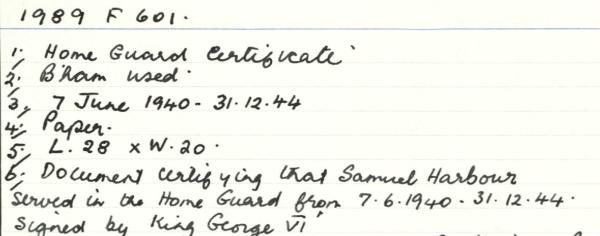 1989 F 601.
1. Home Guard Certificate
2. B'ham used.
3. 7 June 1940 - 31.12.44
4. Paper.
5. L. 28 x W. 20.
6. Document certifying that Samuel Harbour
Served in the Home Guard from 7.6.1940 - 31.12.44.
Signed by King George VI